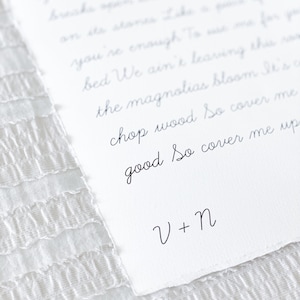 breaks open
on its stones Like a
you're enough To use me for
bed We ain't leaving this
the magnolias bloom It's
chop wood So cover me
good So cover me up
V + N